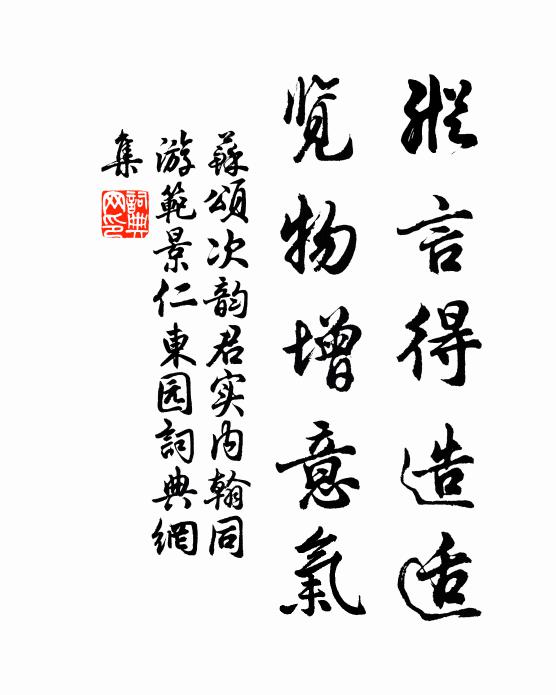 縱言得造适
览物增意氣
蘇頌次韵君实内翰同
游範景仁東园詞典網
集
詞典
网印